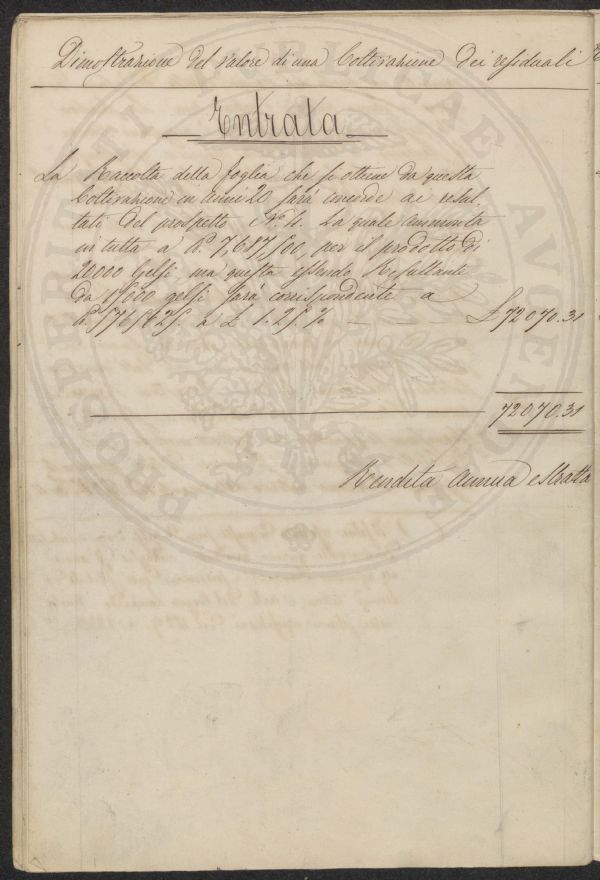 Dimostrazione del valore di una Coltivazione dei residuali
Entrata
La Raccolta della foglia che si ottiene da questa
Coltivazione in anni 20 sarà concorde ai resul-
tati del prospetto N. 4. La quale ammonta
in tutta a P. 7,687,500, per il prodotto di
20000 Gelsi ma questa essendo Resultante
da 15000 gelsi sarà corrispondente a
P. 5765625. a £ 1. 25. % — — £ 72070.31
72070.31
Rendita annua estratta
PROSPERITATI PUBLICAE AUGENDAE